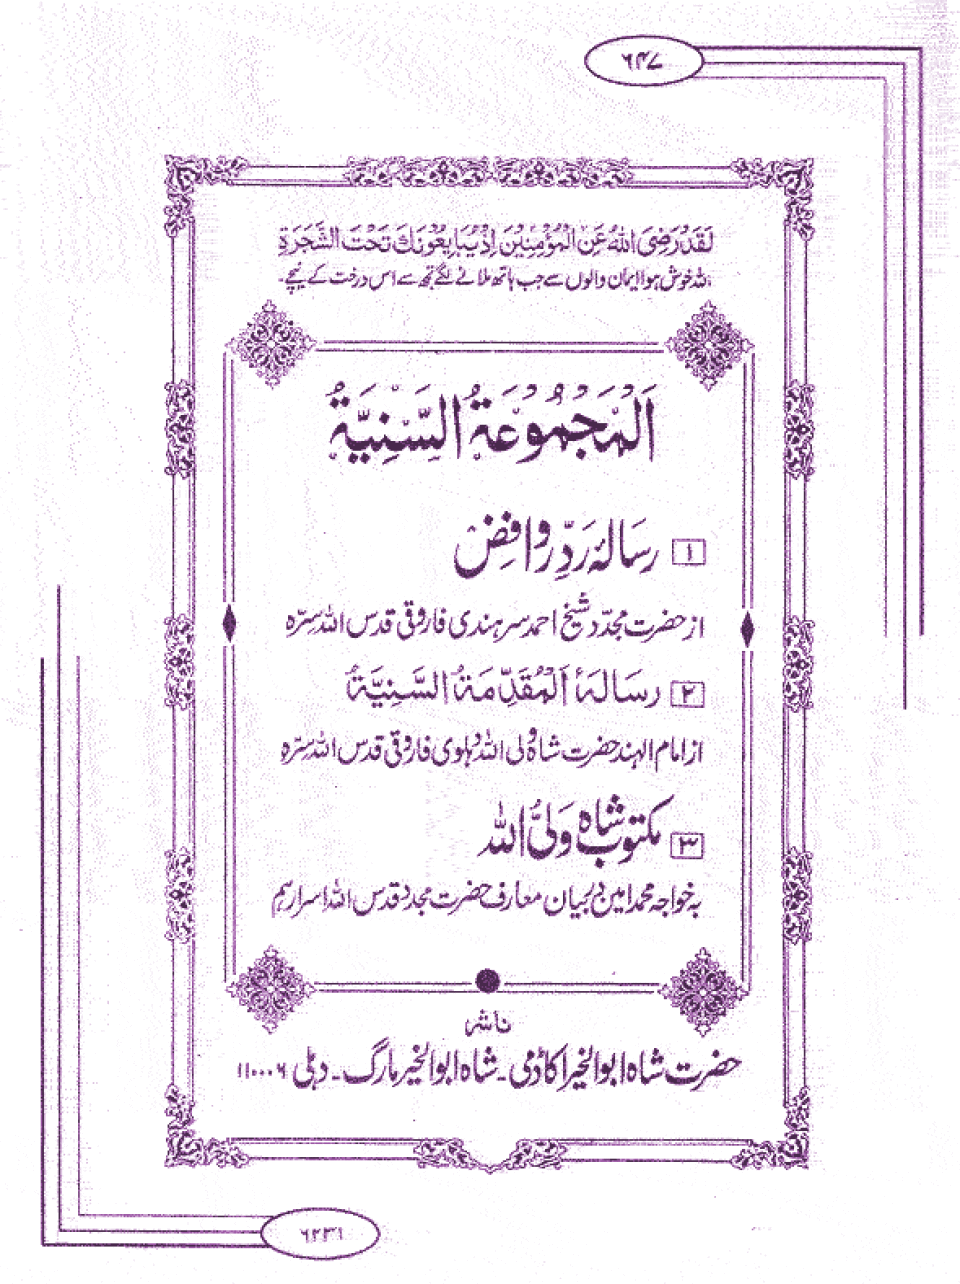 ۶۴۷
لَقَدْ رَضِیَ اللّٰہُ عَنِ الْمُؤْمِنِیْنَ اِذْ یُبَایِعُوْنَكَ تَحْتَ الشَّجَرَةِ
للہ خوش ہوا ایمان والوں سے جب ہاتھ ملانے لگے تجھ سے اس درخت کے نیچے۔
اَلْمَجْمُوْعَةُ السَّنِیَّةُ
۱ رسالۂ رَدِّ رَوافِض
از حضرت مجدّد شیخ احمد سرہندی فاروقی قدس اللہ سرّہ
۲ رسَالَۂ اَلْمُقَدِّمَةُ السَّنِیَّةُ
از امام الہند حضرت شاہ ولی اللہ دہلوی فاروقی قدس اللہ سرّہ
۳ مکتوب شاہ وَلیُّ اللہ
بہ خواجہ محمد امین در بیان معارف حضرت مجدد قدس اللہ اسرارہم
ناشر
حضرت شاہ ابوالخیر اکاڈمی۔ شاہ ابوالخیر مارگ۔ دہلی ۱۱۰۰۰۶